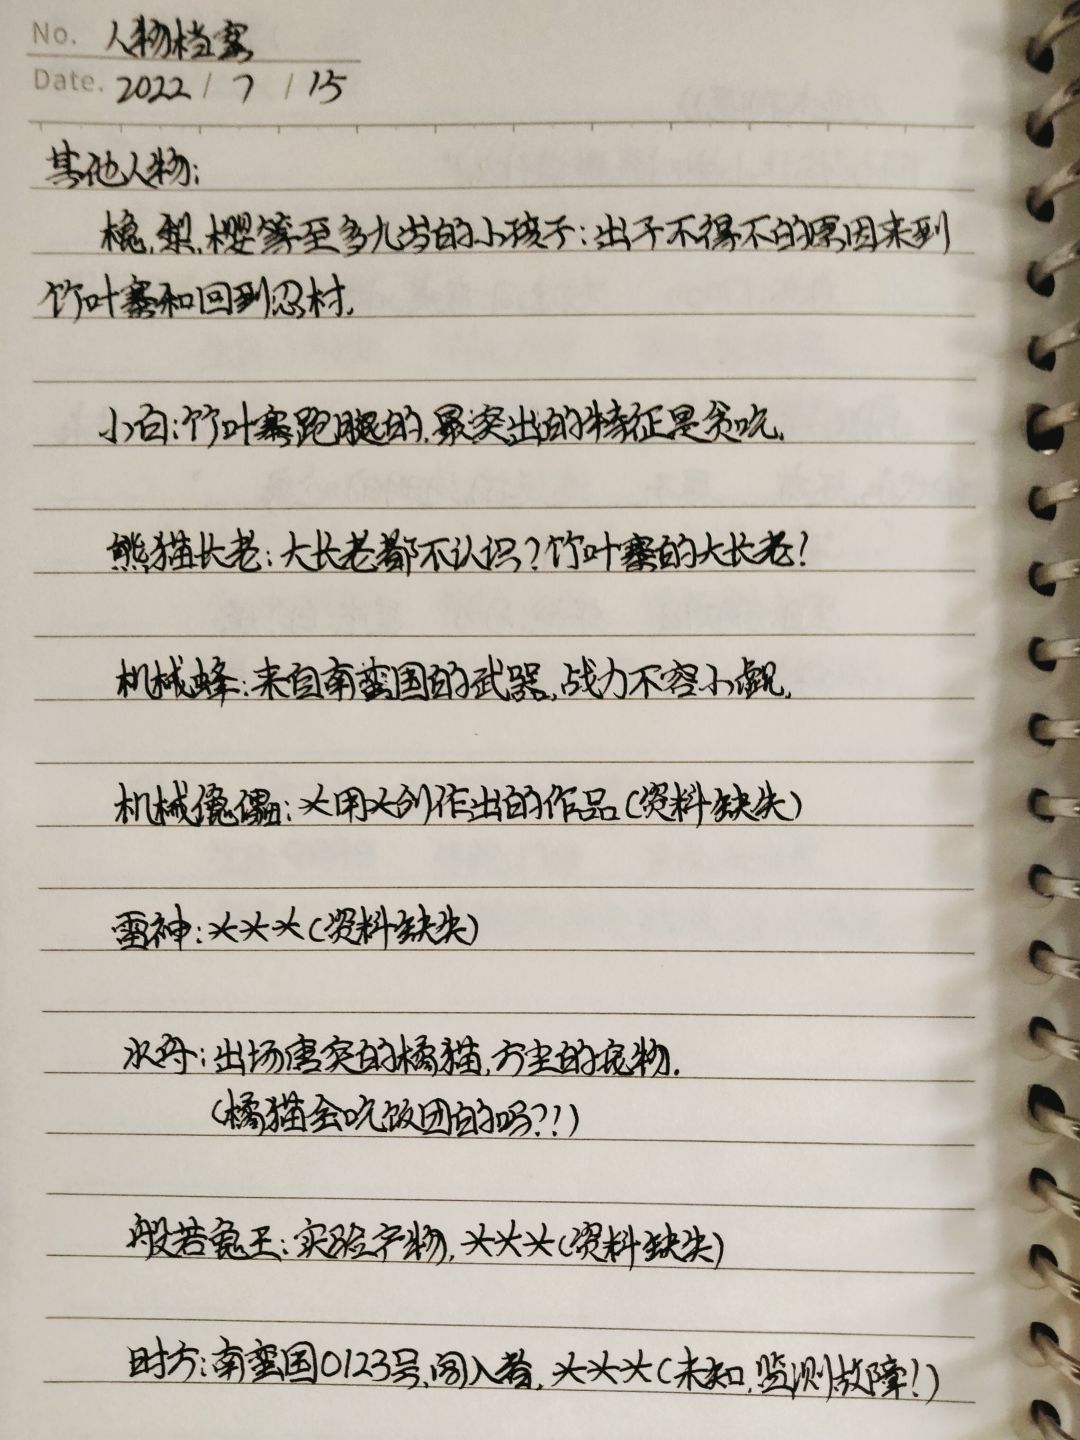 No. 人物档案
Date. 2022 / 7 / 15
其他人物:
槐,梨,樱等至多九岁的小孩子:出于不得不的原因来到
竹叶寨和回到忍村.
小白:竹叶寨跑腿的,最突出的特征是贪吃.
熊猫长老:大长老都不认识?竹叶寨的大长老!
机械蜂:来自南蛮国的武器,战力不容小觑.
机械傀儡:××用××创作出的作品(资料缺失)
雷神:×××(资料缺失)
水丹:出场唐突的橘猫,方尘的宠物.
(橘猫会吃饭团的吗?!)
般若鬼王:实验产物,×××(资料缺失)
时方:南蛮国0123号,闯入者,×××(未知,监测故障!)